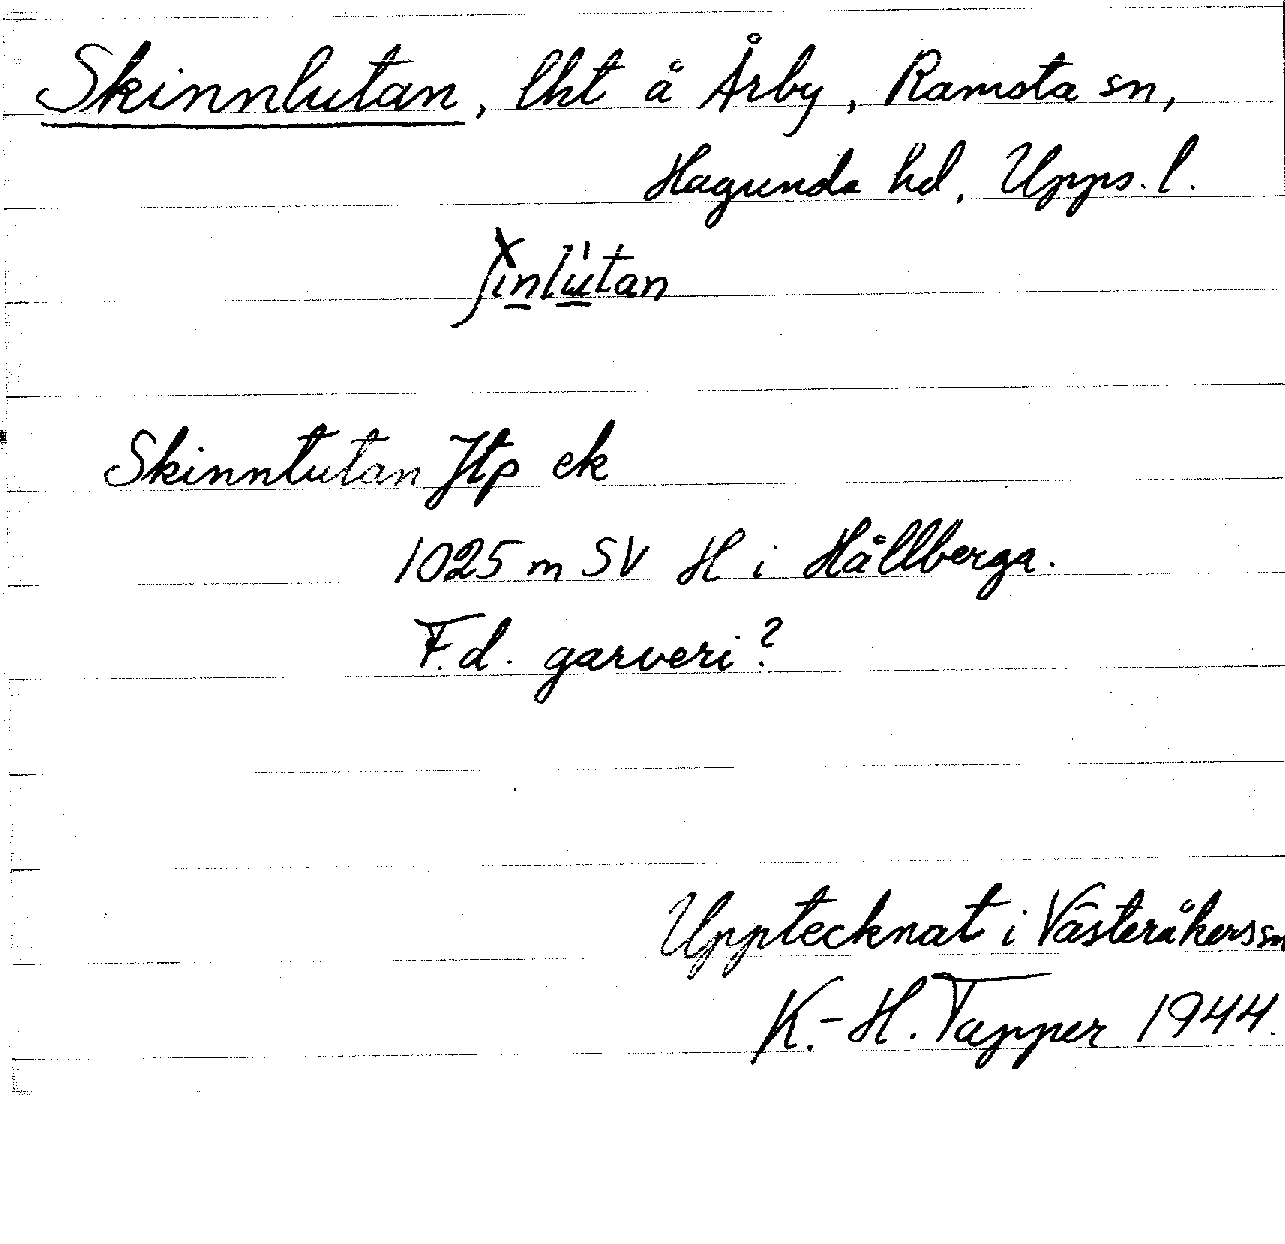 Skinnlutan, lht å Årby, Ramsta sn,
Hagunda hd, Upps. l.
ʃìnlútan
Skinntutan Jtp ek
1025 m SV H i Hällberga.
F.d. garveri?
Upptecknat i Västeråkers sn
K.-H. Tapper 1944.